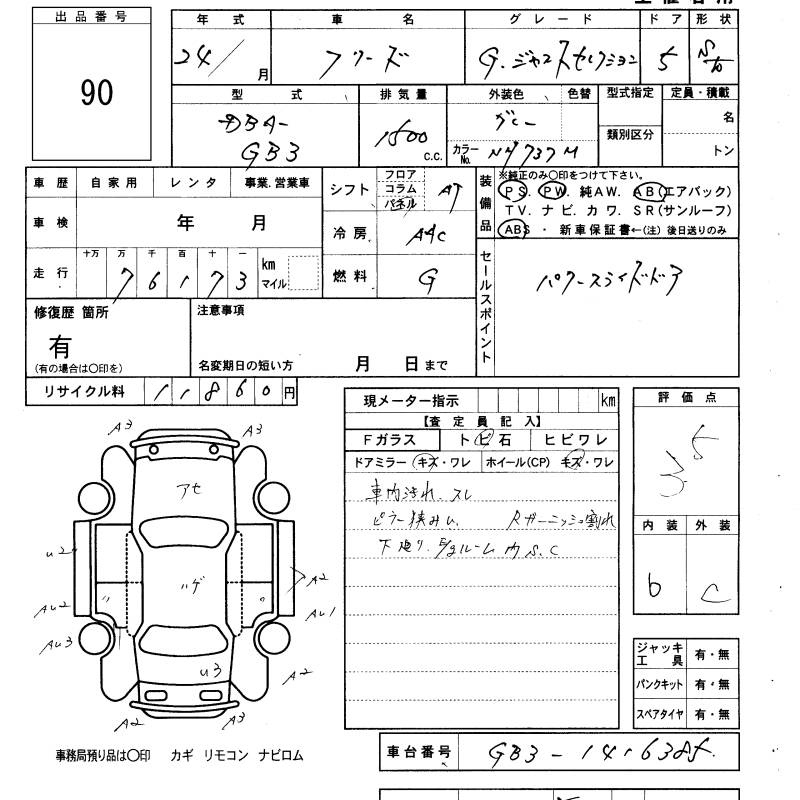 出品番号
90
年式
24/ 月
車名
フリード
グレード
G.ジャストセレクション
ドア
5
形状
型式
DBA-
GB3
排気量
1500
c.c.
外装色
グレー
色替
カラーNo. NH737M
型式指定
類別区分
定員・積載
名
トン
車歴 自家用 レンタ 事業.営業車
車検 年 月
走行 十万 万 千 百 十 一
7 6 1 7 3
km
マイル
シフト フロア コラム パネル AT
冷房 AAC
燃料 G
装備品
※純正のみ〇印をつけて下さい。
PS. PW. 純AW. AB(エアバック)
TV. ナビ. カワ. SR(サンルーフ)
ABS ・ 新車保証書←(注) 後日送りのみ
セールスポイント
パワースライドドア
修復歴 箇所
有
(有の場合は〇印を)
注意事項
名変期日の短い方 月 日まで
リサイクル料 11860円
現メーター指示 km
【査定員記入】
Fガラス トビ石 ヒビワレ
ドアミラー キズ・ワレ ホイール(CP) キズ・ワレ
車内汚れ.スレ
ピラー狭み凹. Rガーニッシュ割れ
下廻り.E/gルーム 内 S.C
評価点
3.5
内装 外装
b C
ジャッキ工具 有・無
パンクキット 有・無
スペアタイヤ 有・無
A3 A3
アセ
U2
ハゲ
A2
AU2
AU1
AU3
U3
A2
A2 A3
事務局預り品は〇印 カギ リモコン ナビロム
車台番号 GB3-1416385